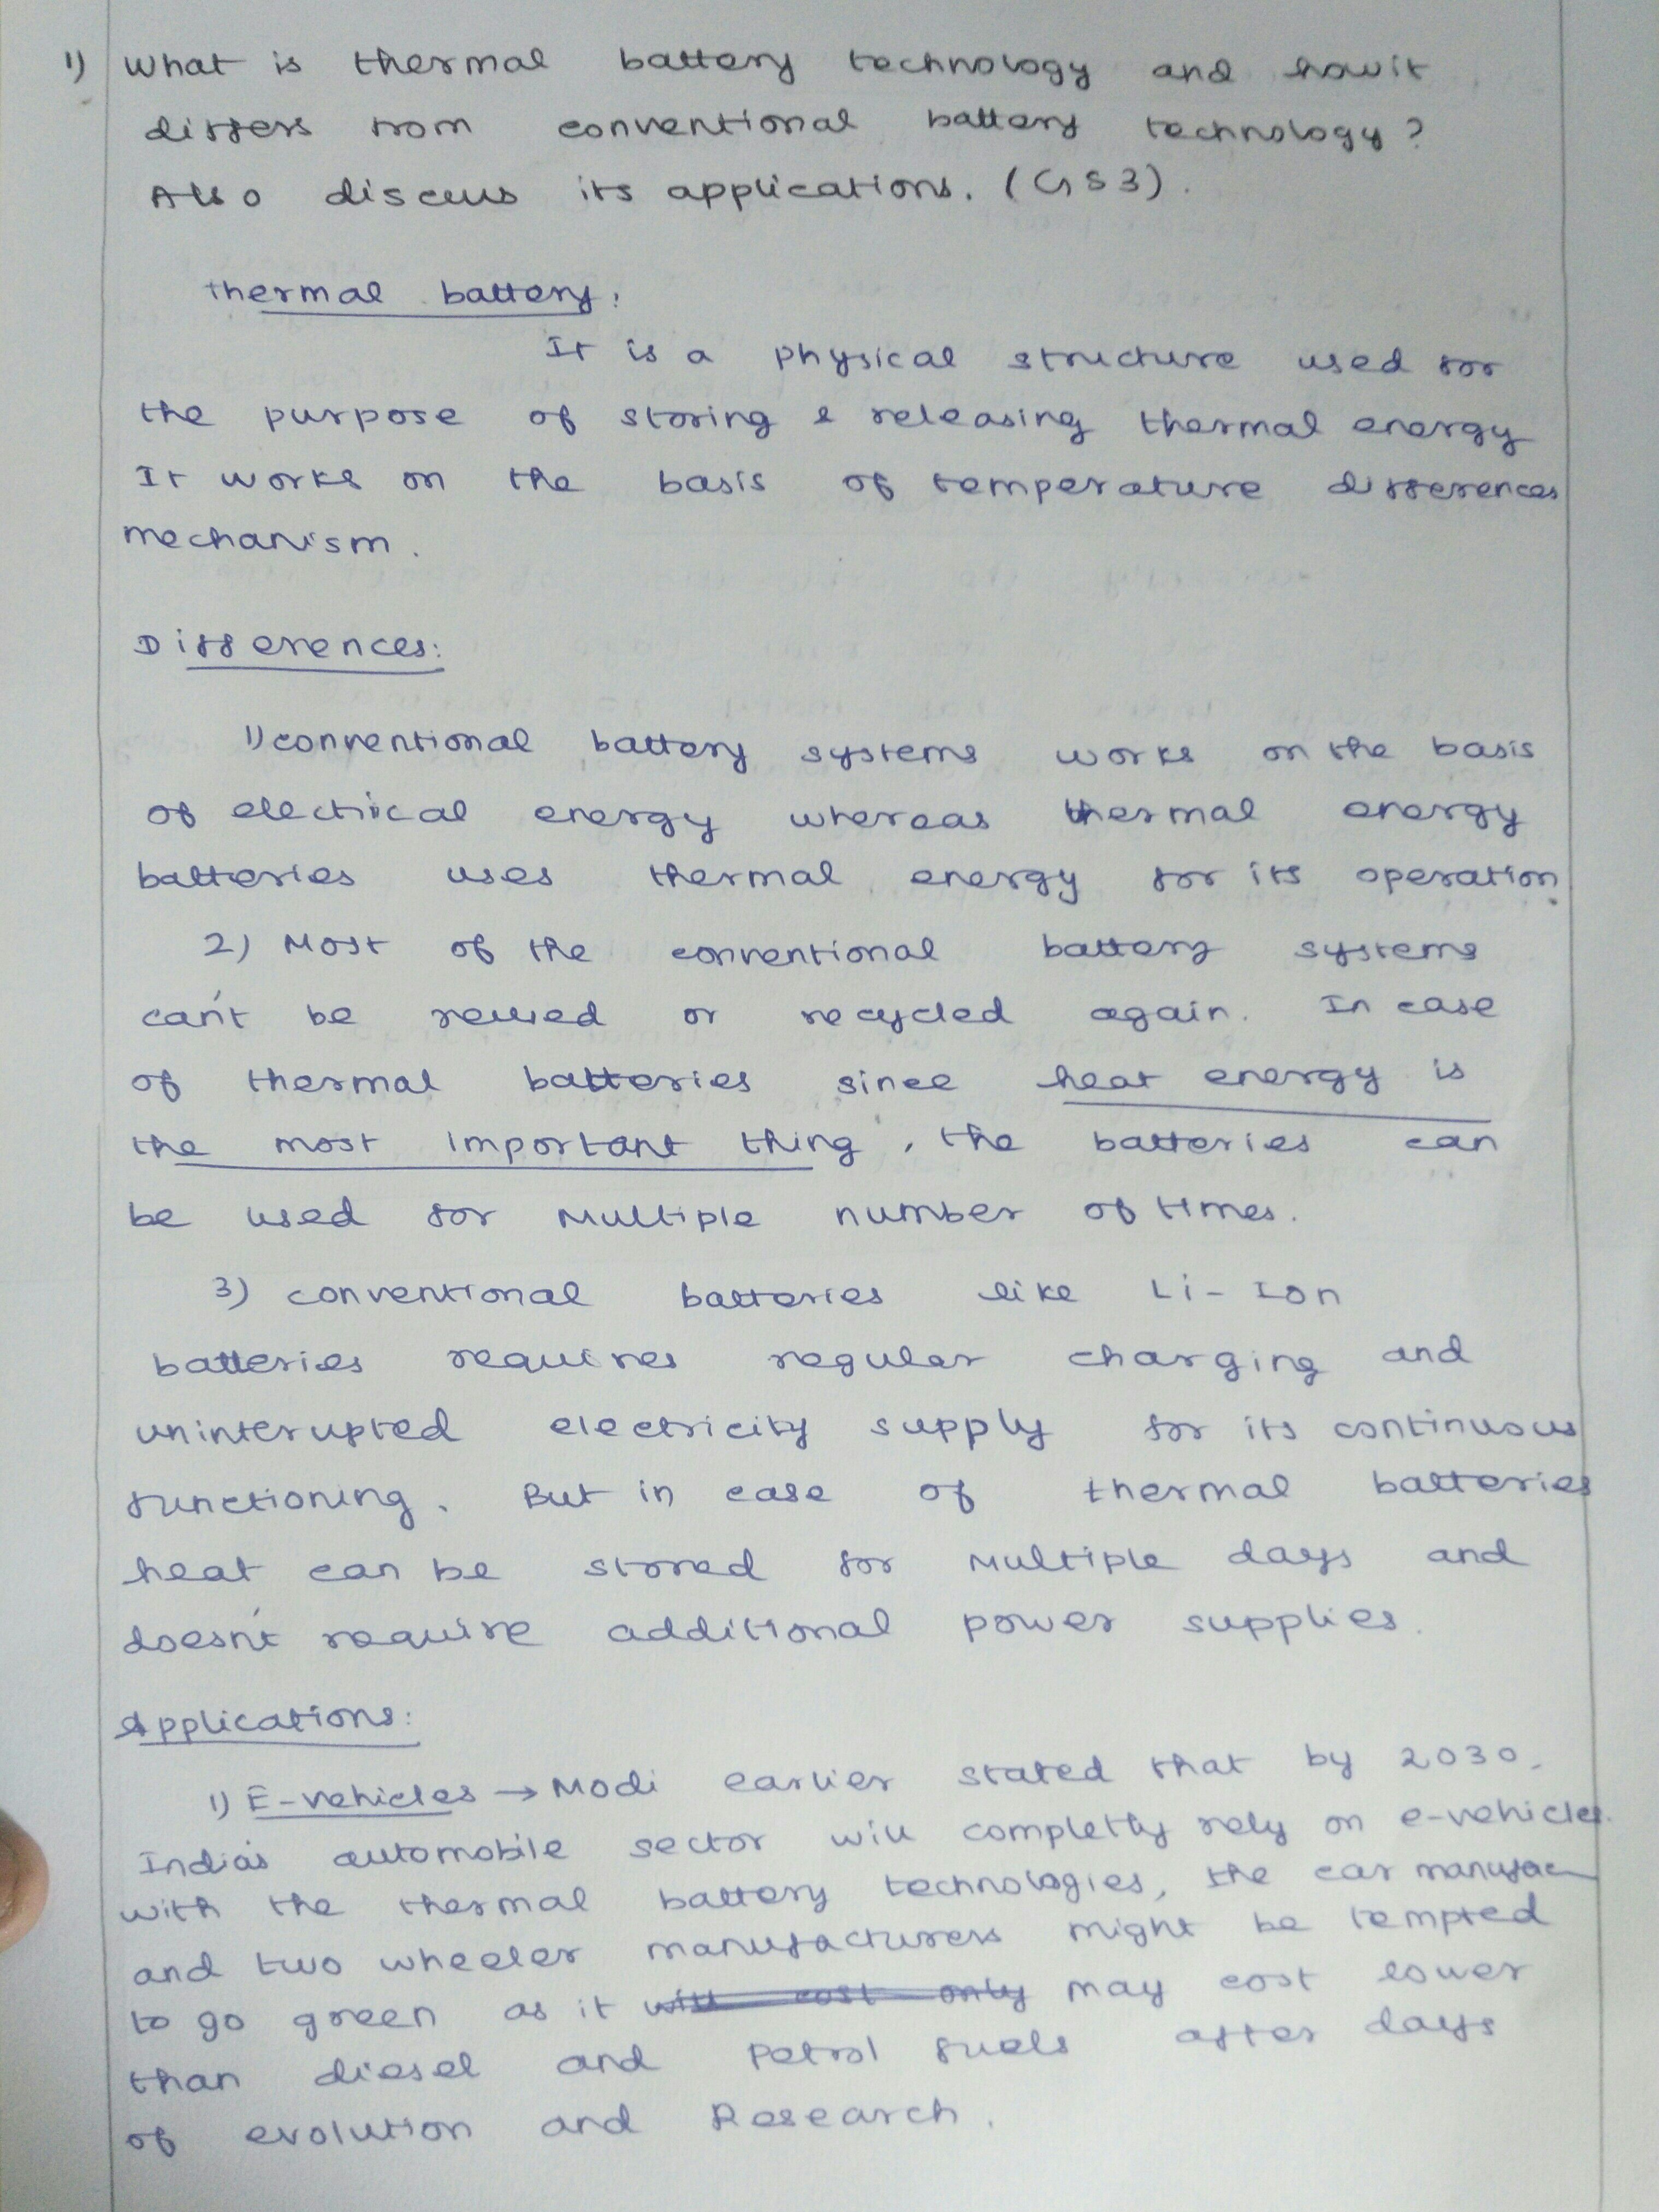 1) What is thermal battery technology and how it
differs from conventional battery technology?
Also discuss its applications. (GS3).
Thermal battery:
It is a physical structure used for
the purpose of storing & releasing thermal energy
It works on the basis of temperature differences
mechanism.
Differences:
1) conventional battery systems works on the basis
of electrical energy whereas thermal energy
batteries uses thermal energy for its operation.
2) Most of the conventional battery systems
can't be reused or recycled again. In case
of thermal batteries since heat energy is
the most important thing, the batteries can
be used for multiple number of times.
3) conventional batteries like Li-Ion
batteries requires regular charging and
uninterupted electricity supply for its continuous
functioning. But in case of thermal batteries
heat can be stored for multiple days and
doesn't require additional power supplies.
Applications:
1) E-vehicles → Modi earlier stated that by 2030,
India's automobile sector will completly rely on e-vehicles.
with the thermal battery technologies, the car manufac
and two wheeler manufacturers might be tempted
to go green as it will cost only may cost lower
than diesel and petrol fuels after days
of evolution and Research.